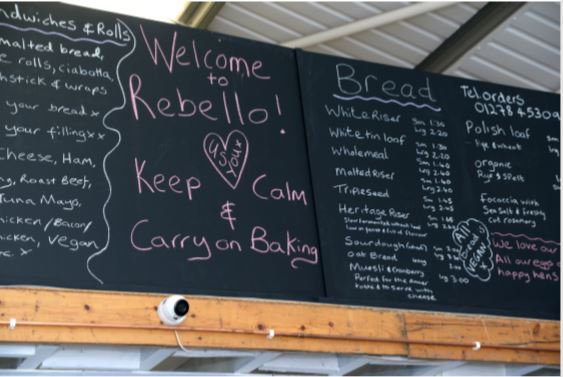 ndwiches & Rolls
malted bread,
e rolls, ciabatta,
hstick & wraps
your bread x
your filling xx
Cheese, Ham,
Roast Beef,
Tuna Mayo,
hicken/Bacon/
icken, Vegan
Welcome
to
Rebello!
Keep Calm
&
Carry on Baking
Bread
White Riser Sm 1.30
Lrg 2.20
White tin loaf Sm 1.30
Lrg 2.20
Wholemeal Sm 1.40
Lrg 2.40
Malted Riser Sm 1.40
Lrg 2.40
Tripleseed Sm 1.45
Lrg 2.45
Heritage Riser Sm 1.65
Sourdough
Oat Bread
Muesli & Cranberry Lrg 3.00
Perfect for the
taste & to serve with
cheese
All
bread
VEGAN
x
Tel. orders
01278 45309
Polish loaf
rye & wheat
organic
Rye & Spelt
Focaccia with
Sea Salt & freshly
cut rosemary
We love our
All our eggs
happy hens